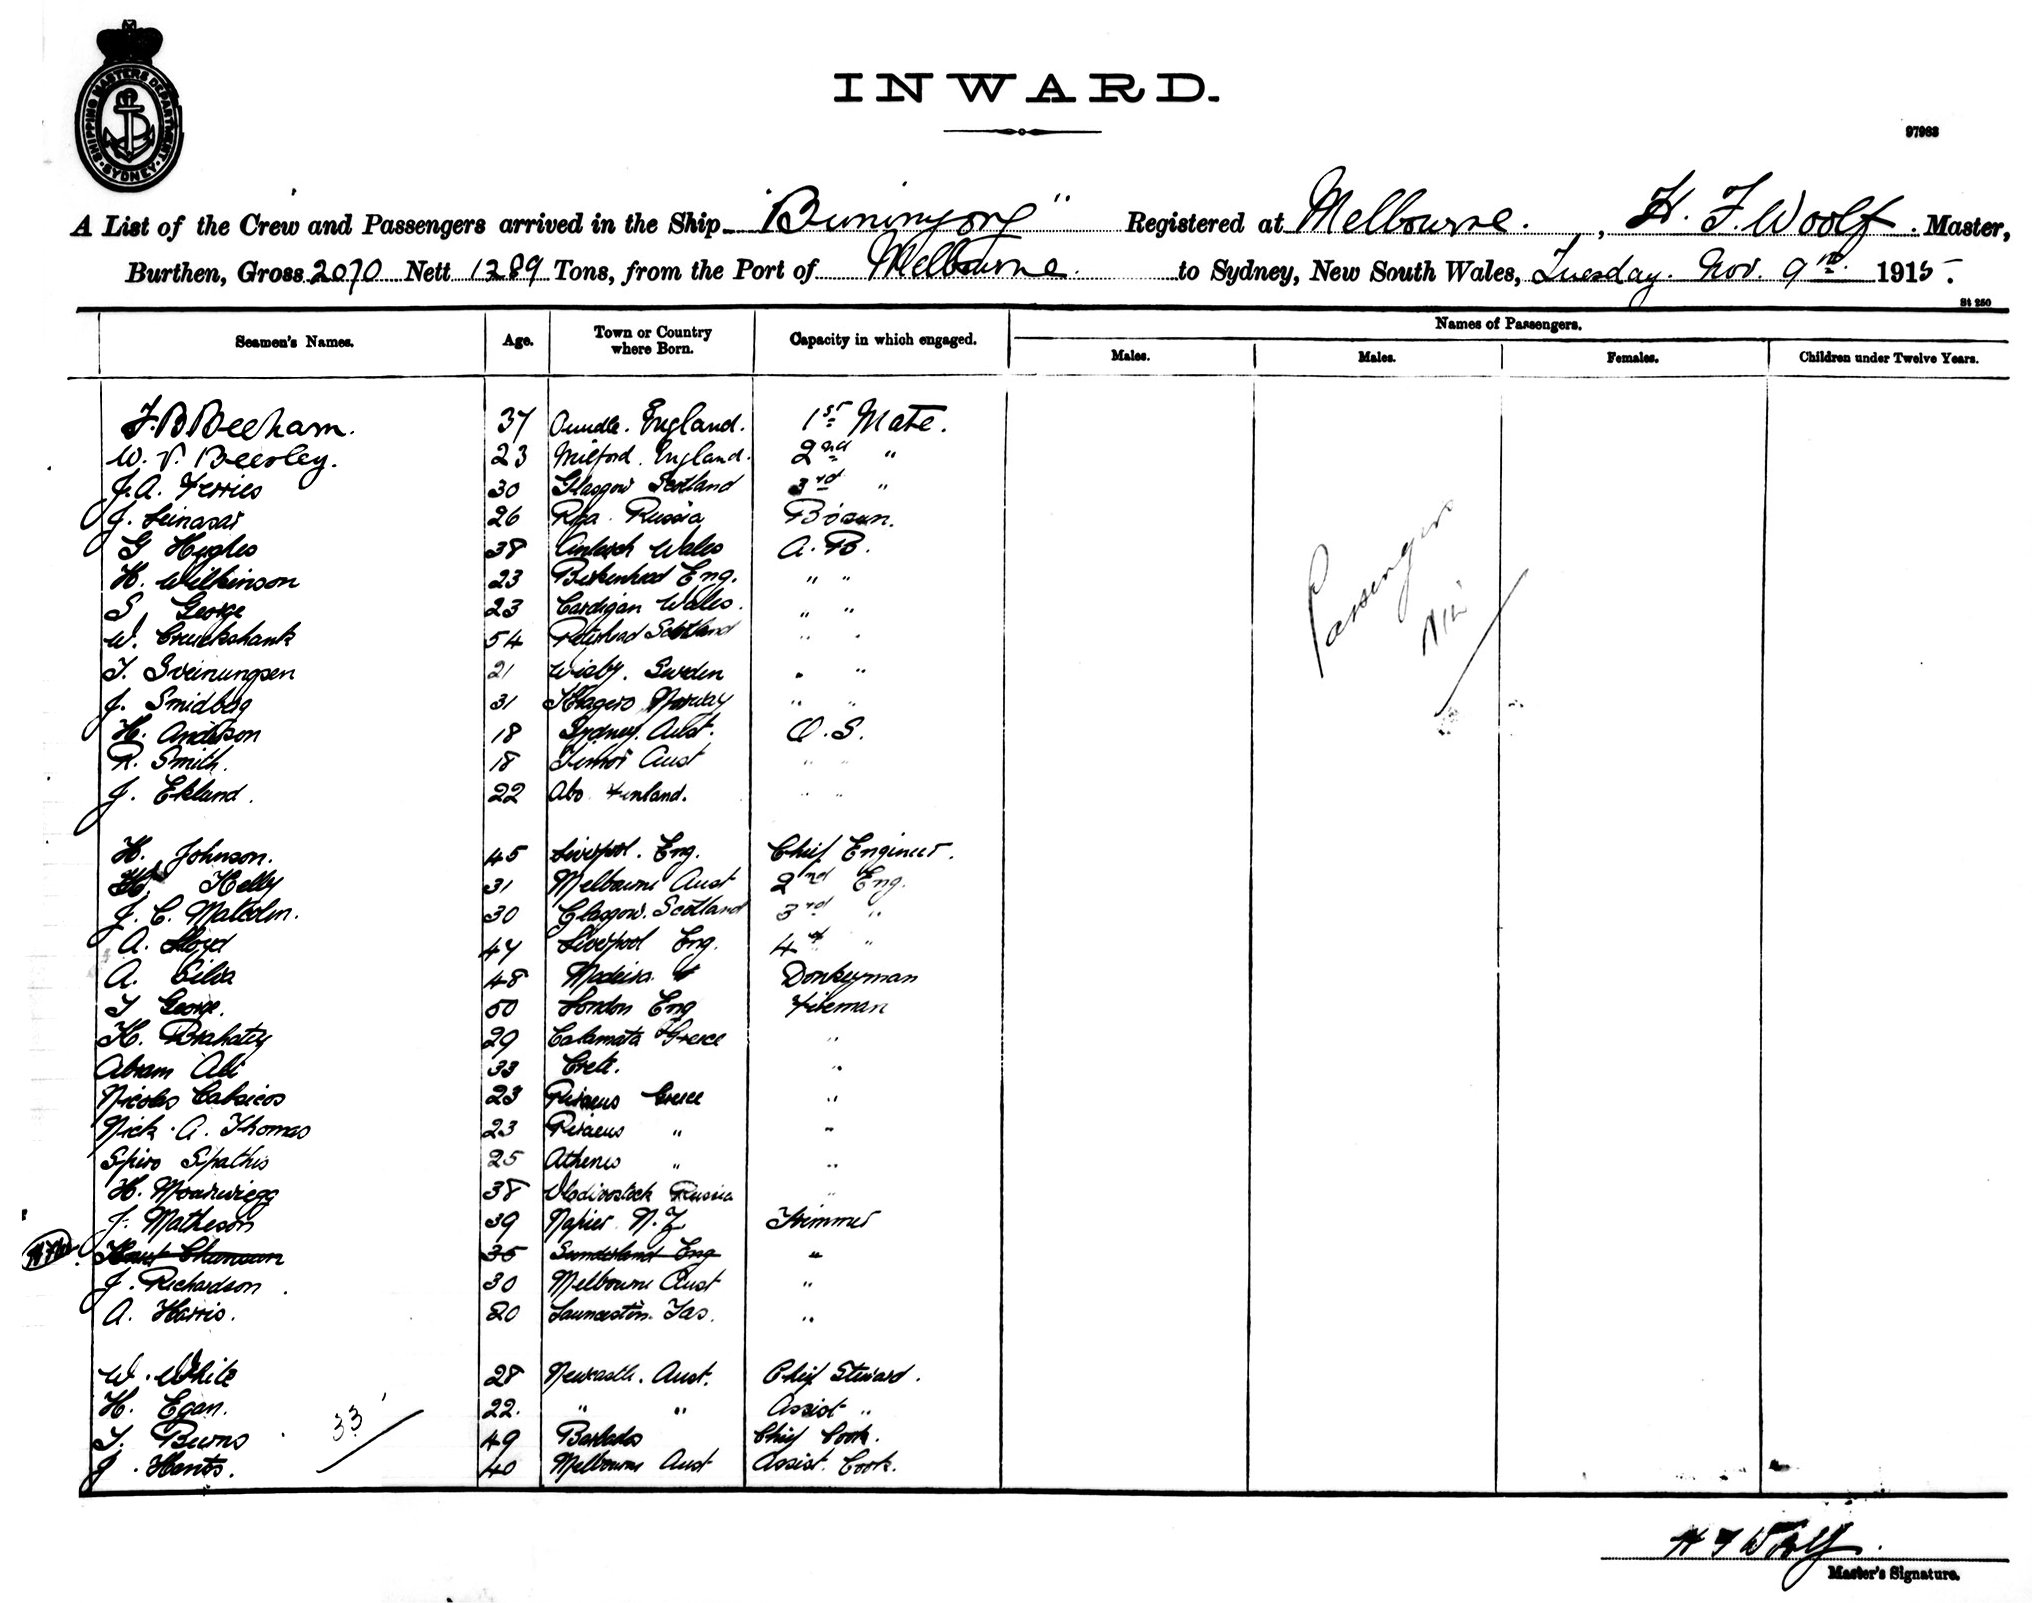 SHIPPING MASTERS DEPARTMENT
SYDNEY
INWARD.
97963
A List of the Crew and Passengers arrived in the Ship "Buninyong" Registered at Melbourne. , H. F. Woolf. Master,
Burthen, Gross 2070 Nett 1289 Tons, from the Port of Melbourne. to Sydney, New South Wales, Tuesday. Nov. 9th. 1915.
St 250
Seamen's Names. Age. Town or Country where Born. Capacity in which engaged. Names of Passengers.
Males. Males. Females. Children under Twelve Years.
F. B Beeham. 37 Oundle. England. 1st Mate.
W. V. Beesley. 23 Milford. England. 2nd "
J. A. Ferries 30 Glasgow Scotland 3rd "
J. Leinasar 26 Riga Russia Bosun.
G Hughes 38 Amlwch Wales A. B.
H. Wilkinson 23 Birkenhead Eng. " "
S. George 23 Cardigan Wales. " "
W. Cruickshank 54 Peterhead Scotland " "
T. Sveinungsen 21 Wisby. Sweden " "
J. Smidbag 31 Kragero Norway " "
H. Anderson 18 Sydney. Aust. O. S.
R. Smith. 18 Timor Aust " "
J. Ekland. 22 Abo Finland. " "
Passengers
Nil
H. Johnson. 45 Liverpool. Eng. Chief Engineer.
Kelly 31 Melbourne Aust 2nd Eng.
J. C. Malcolm. 30 Glasgow. Scotland 3rd "
A. Lloyd 47 Liverpool Eng. 4th "
A. Silva 48 Madeira. Donkeyman
T George. 50 London Eng Fireman
K. Brahatis 29 Calamata Greece "
Abram Ali 33 Crete. "
Nicolas Calsicos 23 Piraeus Greece "
Nick. A. Thomas 23 Piraeus " "
Spiro Spathis 25 Athens " "
H. 38 Vladivostock Russia "
J. Matheson 39 Napier N. Z Trimmer
35 Sunderland Eng "
J. Richardson. 30 Melbourne Aust "
A. Harris. 20 Launceston. Tas. "
W. White 28 Newcastle. Aust. Chief Steward.
H. Egan. 22. " " Assist "
T. Burns 49 Barbados Chief Cook.
J. Hants. 40 Melbourne Aust Assist. Cook.
33
H F Woolf.
Master's Signature.